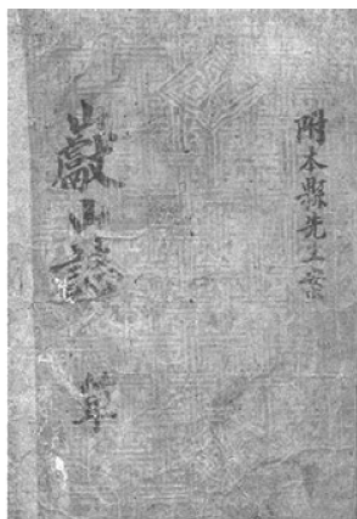 附本縣先生案
巚山誌 單